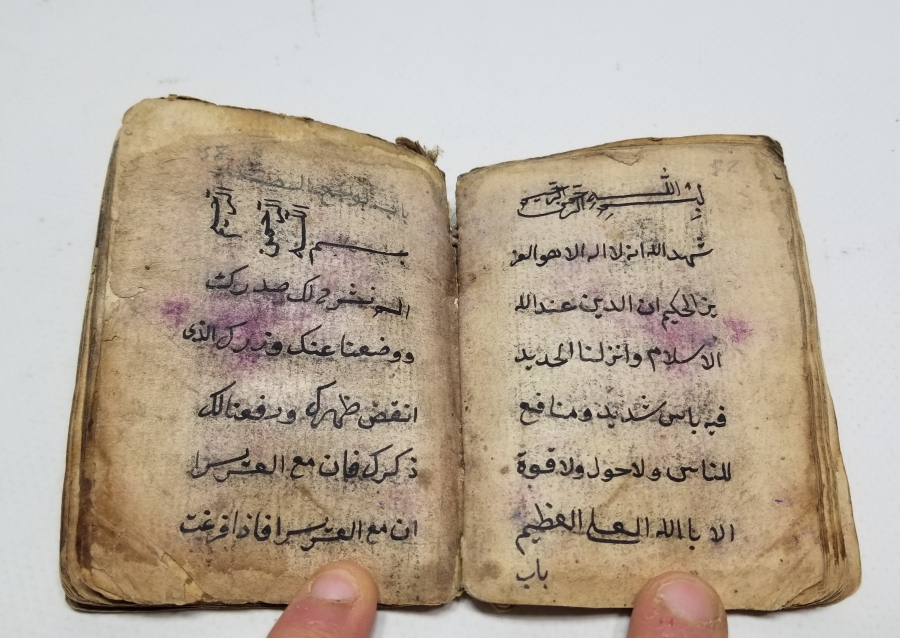 بسم الله الرحمن الرحيم
شهد الله انه لا اله الا هو العز
يز الحكيم ان الدين عند الله
الاسلام وانزلنا الحديد
فيه باس شديد ومنافع
للناس ولا حول ولا قوة
الا بالله العلى العظيم
باب
بسم الله الرحمن الرحيم
الم نشرح لك صدرك
ووضعنا عنك وزرك الذى
انقض ظهرك ورفعنا لك
ذكرك فان مع العسر يسرا
ان مع العسر يسرا فاذا فرغت